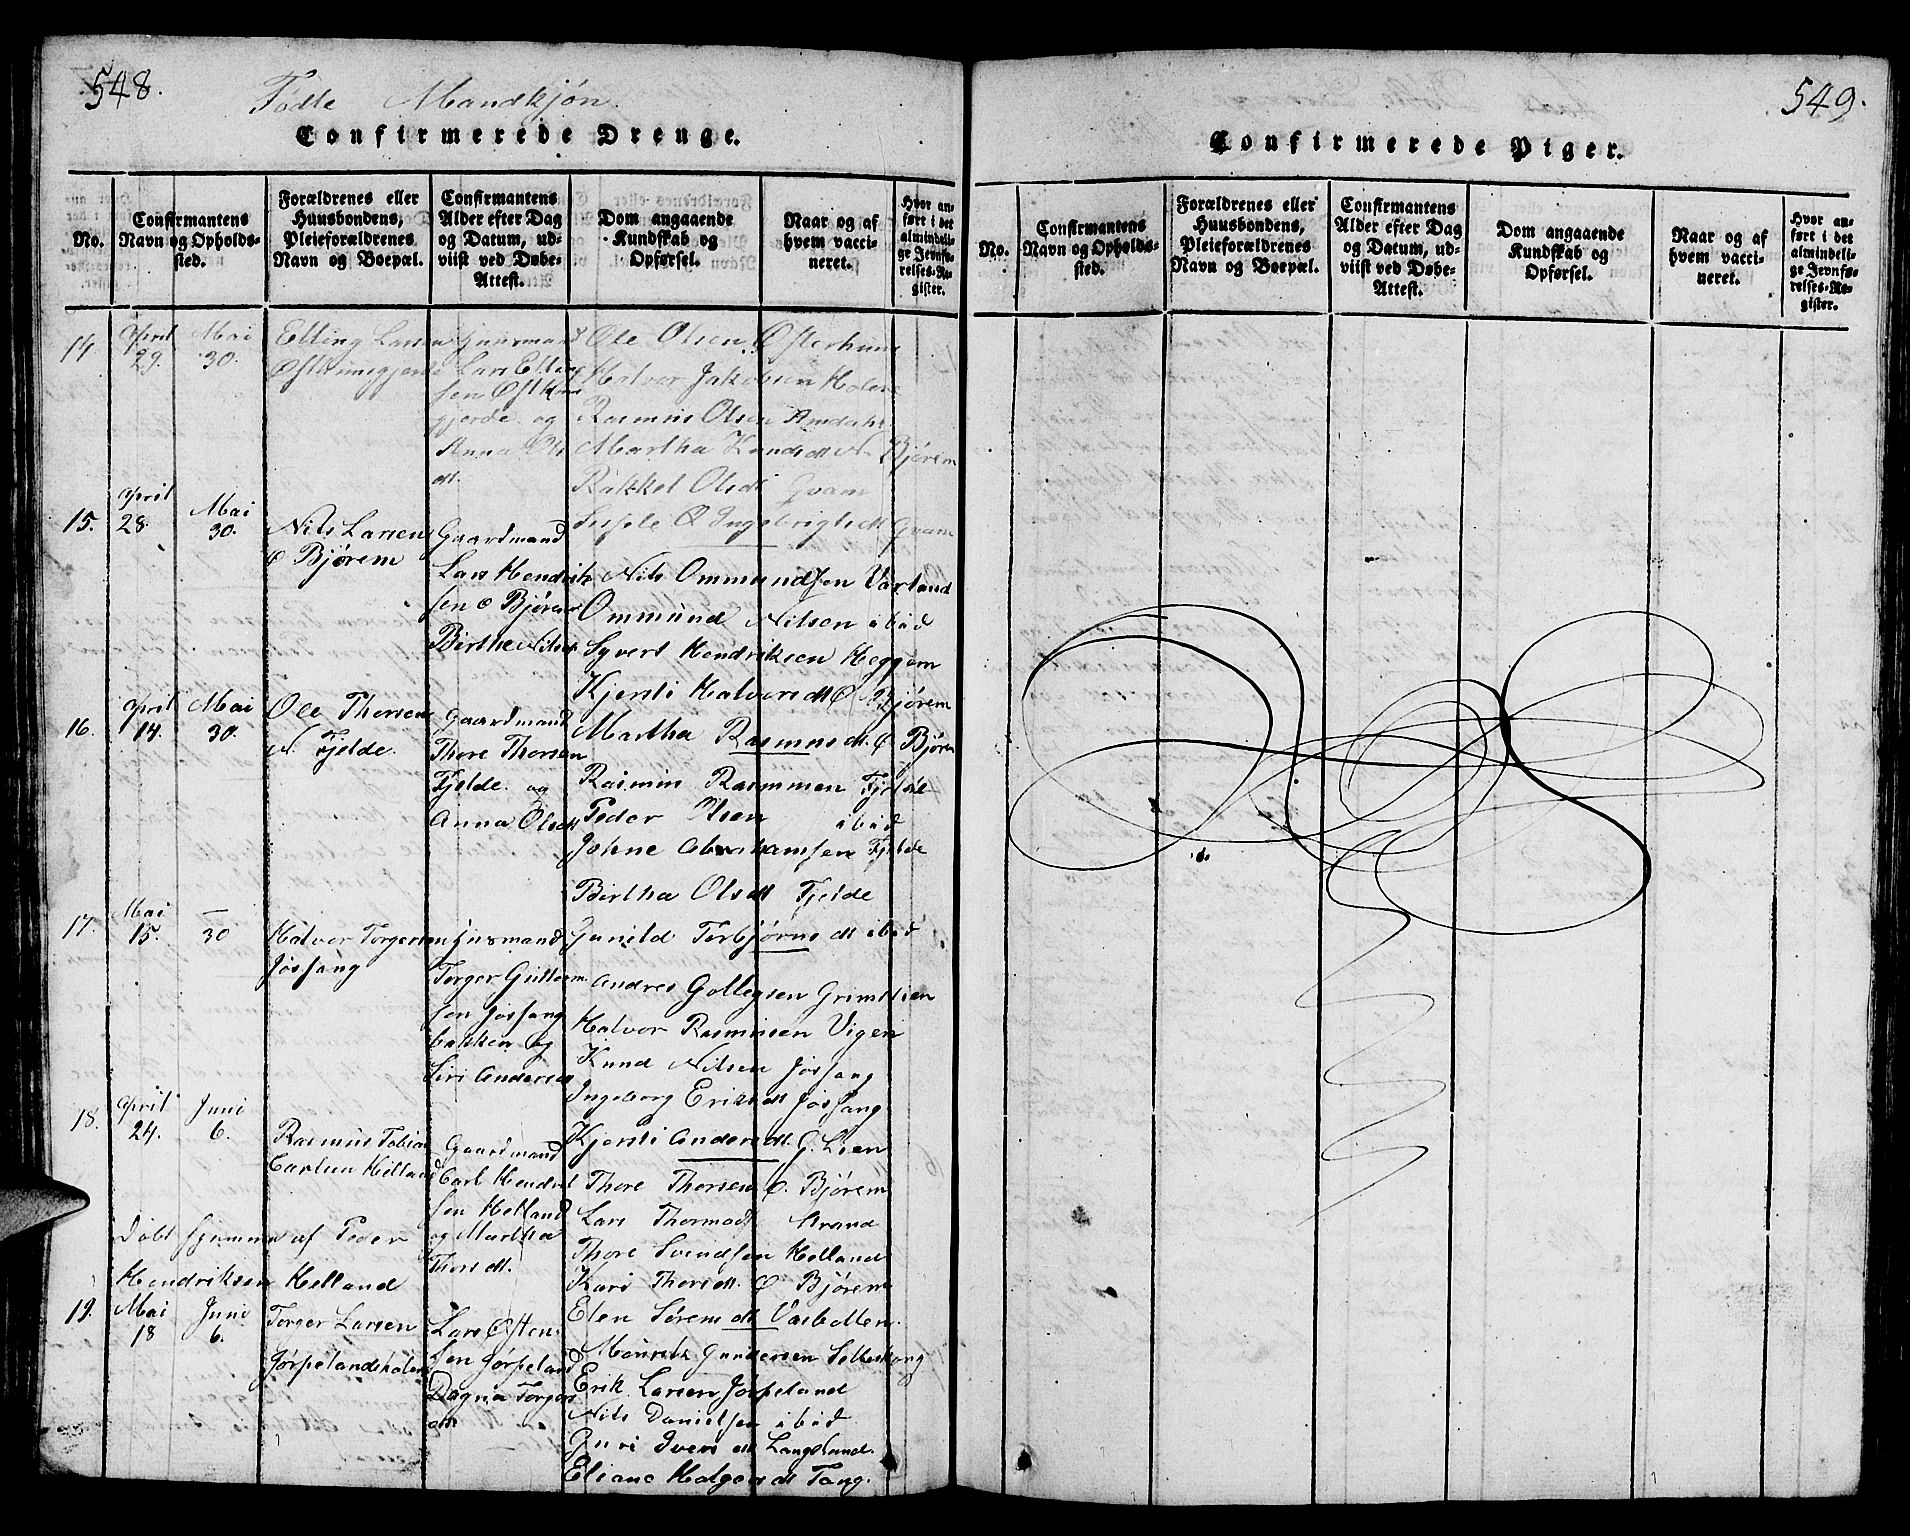 548.
Fødte Mandkjøn.
Confirmerede Drenge.
No.
Confirmantens
Navn og Opholds-
sted.
Forældrenes eller
Huusbondens,
Pleieforældrenes
Navn og Boepæl.
Confirmantens
Alder efter Dag
og Datum, ud-
viist ved Døbe-
Attest.
Dom angaaende
Kundskab og
Opførsel.
Naar og af
hvem vacci-
neret.
Hvor an-
ført i det
almindeli-
ge Jevnfø-
relses-Re-
gister.
14
April
29.
Mai
30.
Elling Larsen
Huusmand
Lars
og
Anna
dt.
Ole Olsen Østerhuus
Halvor Jakobsen
Rasmus Olsen Amdahl
Martha Knudsdt N. Bjørem
Rakkel Olsdt Qvam
Ingebrigtsdt Qvam
15.
April
28.
Mai
30.
Nils Larsen
Ø Bjørem
Gaardmand
Lars Hendrik
sen Ø Bjørem
Birthe Nilsdt
Nils Ommundsen Varland
Ommund Nilsen ibid
Syvert Hendriksen Heggem
Kjersti Halvorsdt Ø Bjørem
Martha Rasmusdt. Ø Bjørem
16.
April
14.
Mai
30.
Ole Thorsen
N. Fjelde.
Gaardmand
Thore Thorsen
Fjelde og
Anna Olsdt
Rasmus Rasmusen Fjelde
Peder Olsen ibid
Johne Abrahamsen Fjelde
Birtha Olsdt Fjelde
Gunild Torbjørnsdt ibid
17.
Mai
15.
—
30
Halvor Torgersen
Jøsfang
Huusmand
Torger Guttorm
sen Jøsfang
bakken og
Siri Andersdt
Andres Gollegsen Grimslien
Halvor Rasmusen Vigen
Knud Nilsen Jøsfang
Ingeborg Eriksdt Jøsfang
Kjersti Andersdt. G. Lien
18.
April
24.
Juni
6.
Rasmus Tobias
Carlsen Helland
Gaardmand
Carl Hendrik
sen Helland
og Martha
Thorsdt.
Thore Thorsen Ø. Bjørem
Lars Thormods Strand
Thore Svendsen Helland
Kari Thorsdt. Ø Bjørem
Elen Sørensdt Vasbotten.
Døbt hjemme af Peder
Hendriksen Helland
19.
Mai
18
Juni
6.
Torger Larsen
Jørpelandsholm
Lars Østen
sen Jørpeland
Dagna Torgers
dt
Mouritz Gundersen Selleskong
Erik Larsen Jørpeland
Nils Danielsen ibid
Guri Iversdt Langeland.
Eliane Halgardsdt Tang.
549.
Confirmerede Piger.
No.
Confirmantens
Navn og Opholds-
sted.
Forældrenes eller
Huusbondens,
Pleieforældrenes
Navn og Boepæl.
Confirmantens
Alder efter Dag
og Datum, ud-
viist ved Døbe-
Attest.
Dom angaaende
Kundskab og
Opførsel.
Naar og af
hvem vacci-
neret.
Hvor an-
ført i det
almindeli-
ge Jevnfø-
relses-Re-
gister.